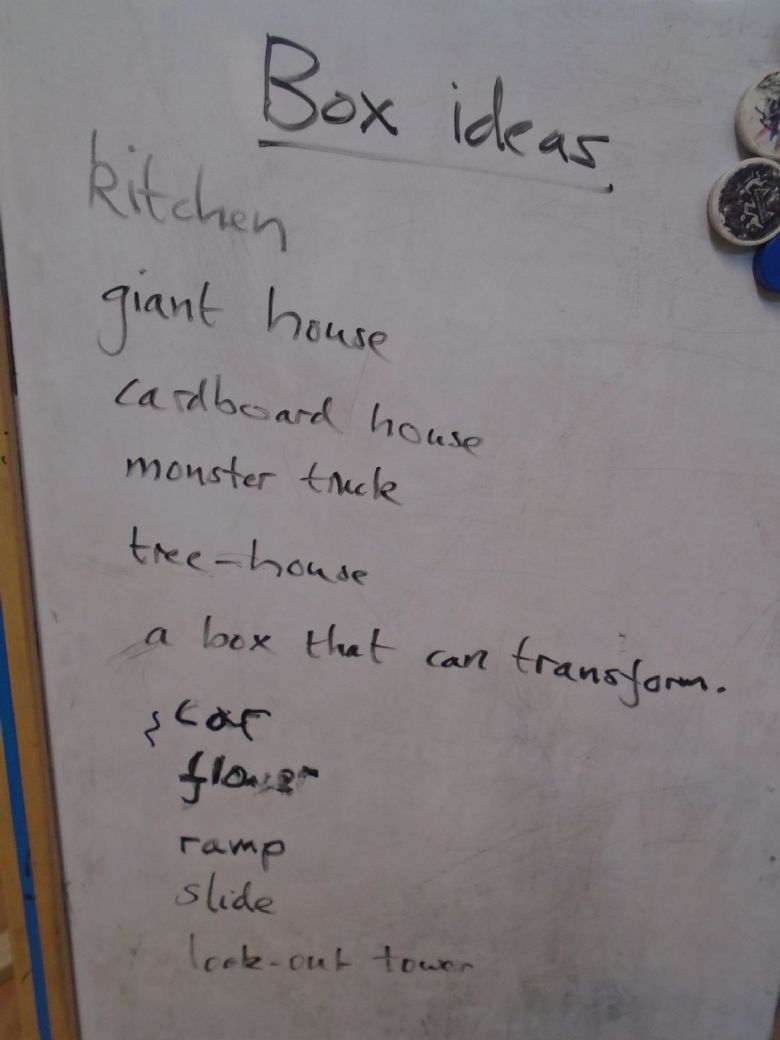 Box ideas
kitchen
giant house
cardboard house
monster truck
tree-house
a box that can transform.
car
flower
ramp
slide
look-out tower